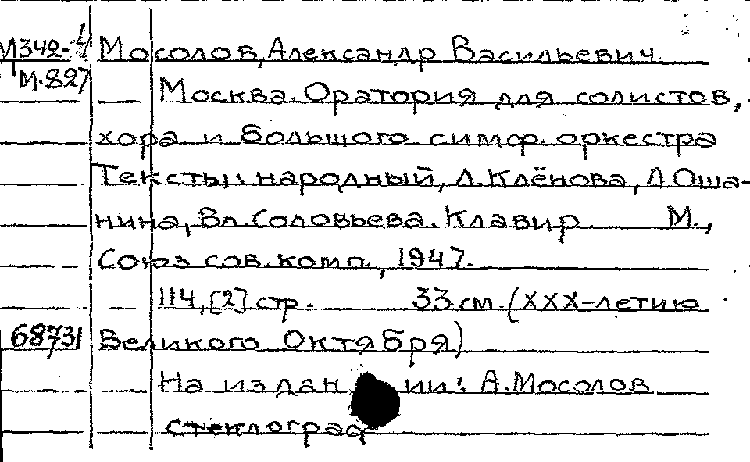 М342-4 Мосолов, Александр Васильевич.
М.827
Москва. Оратория для солистов,
хора и большого симф. оркестра
Тексты: народный, Л. Клёнова, Л Оша-
нина, Вл. Соловьева. Клавир М.,
Союз сов. комп., 1947.
114, [2] стр. 33 см. (XXX-летию
68731 Великого Октября)
На издании: А. Мосолов
стеклограф